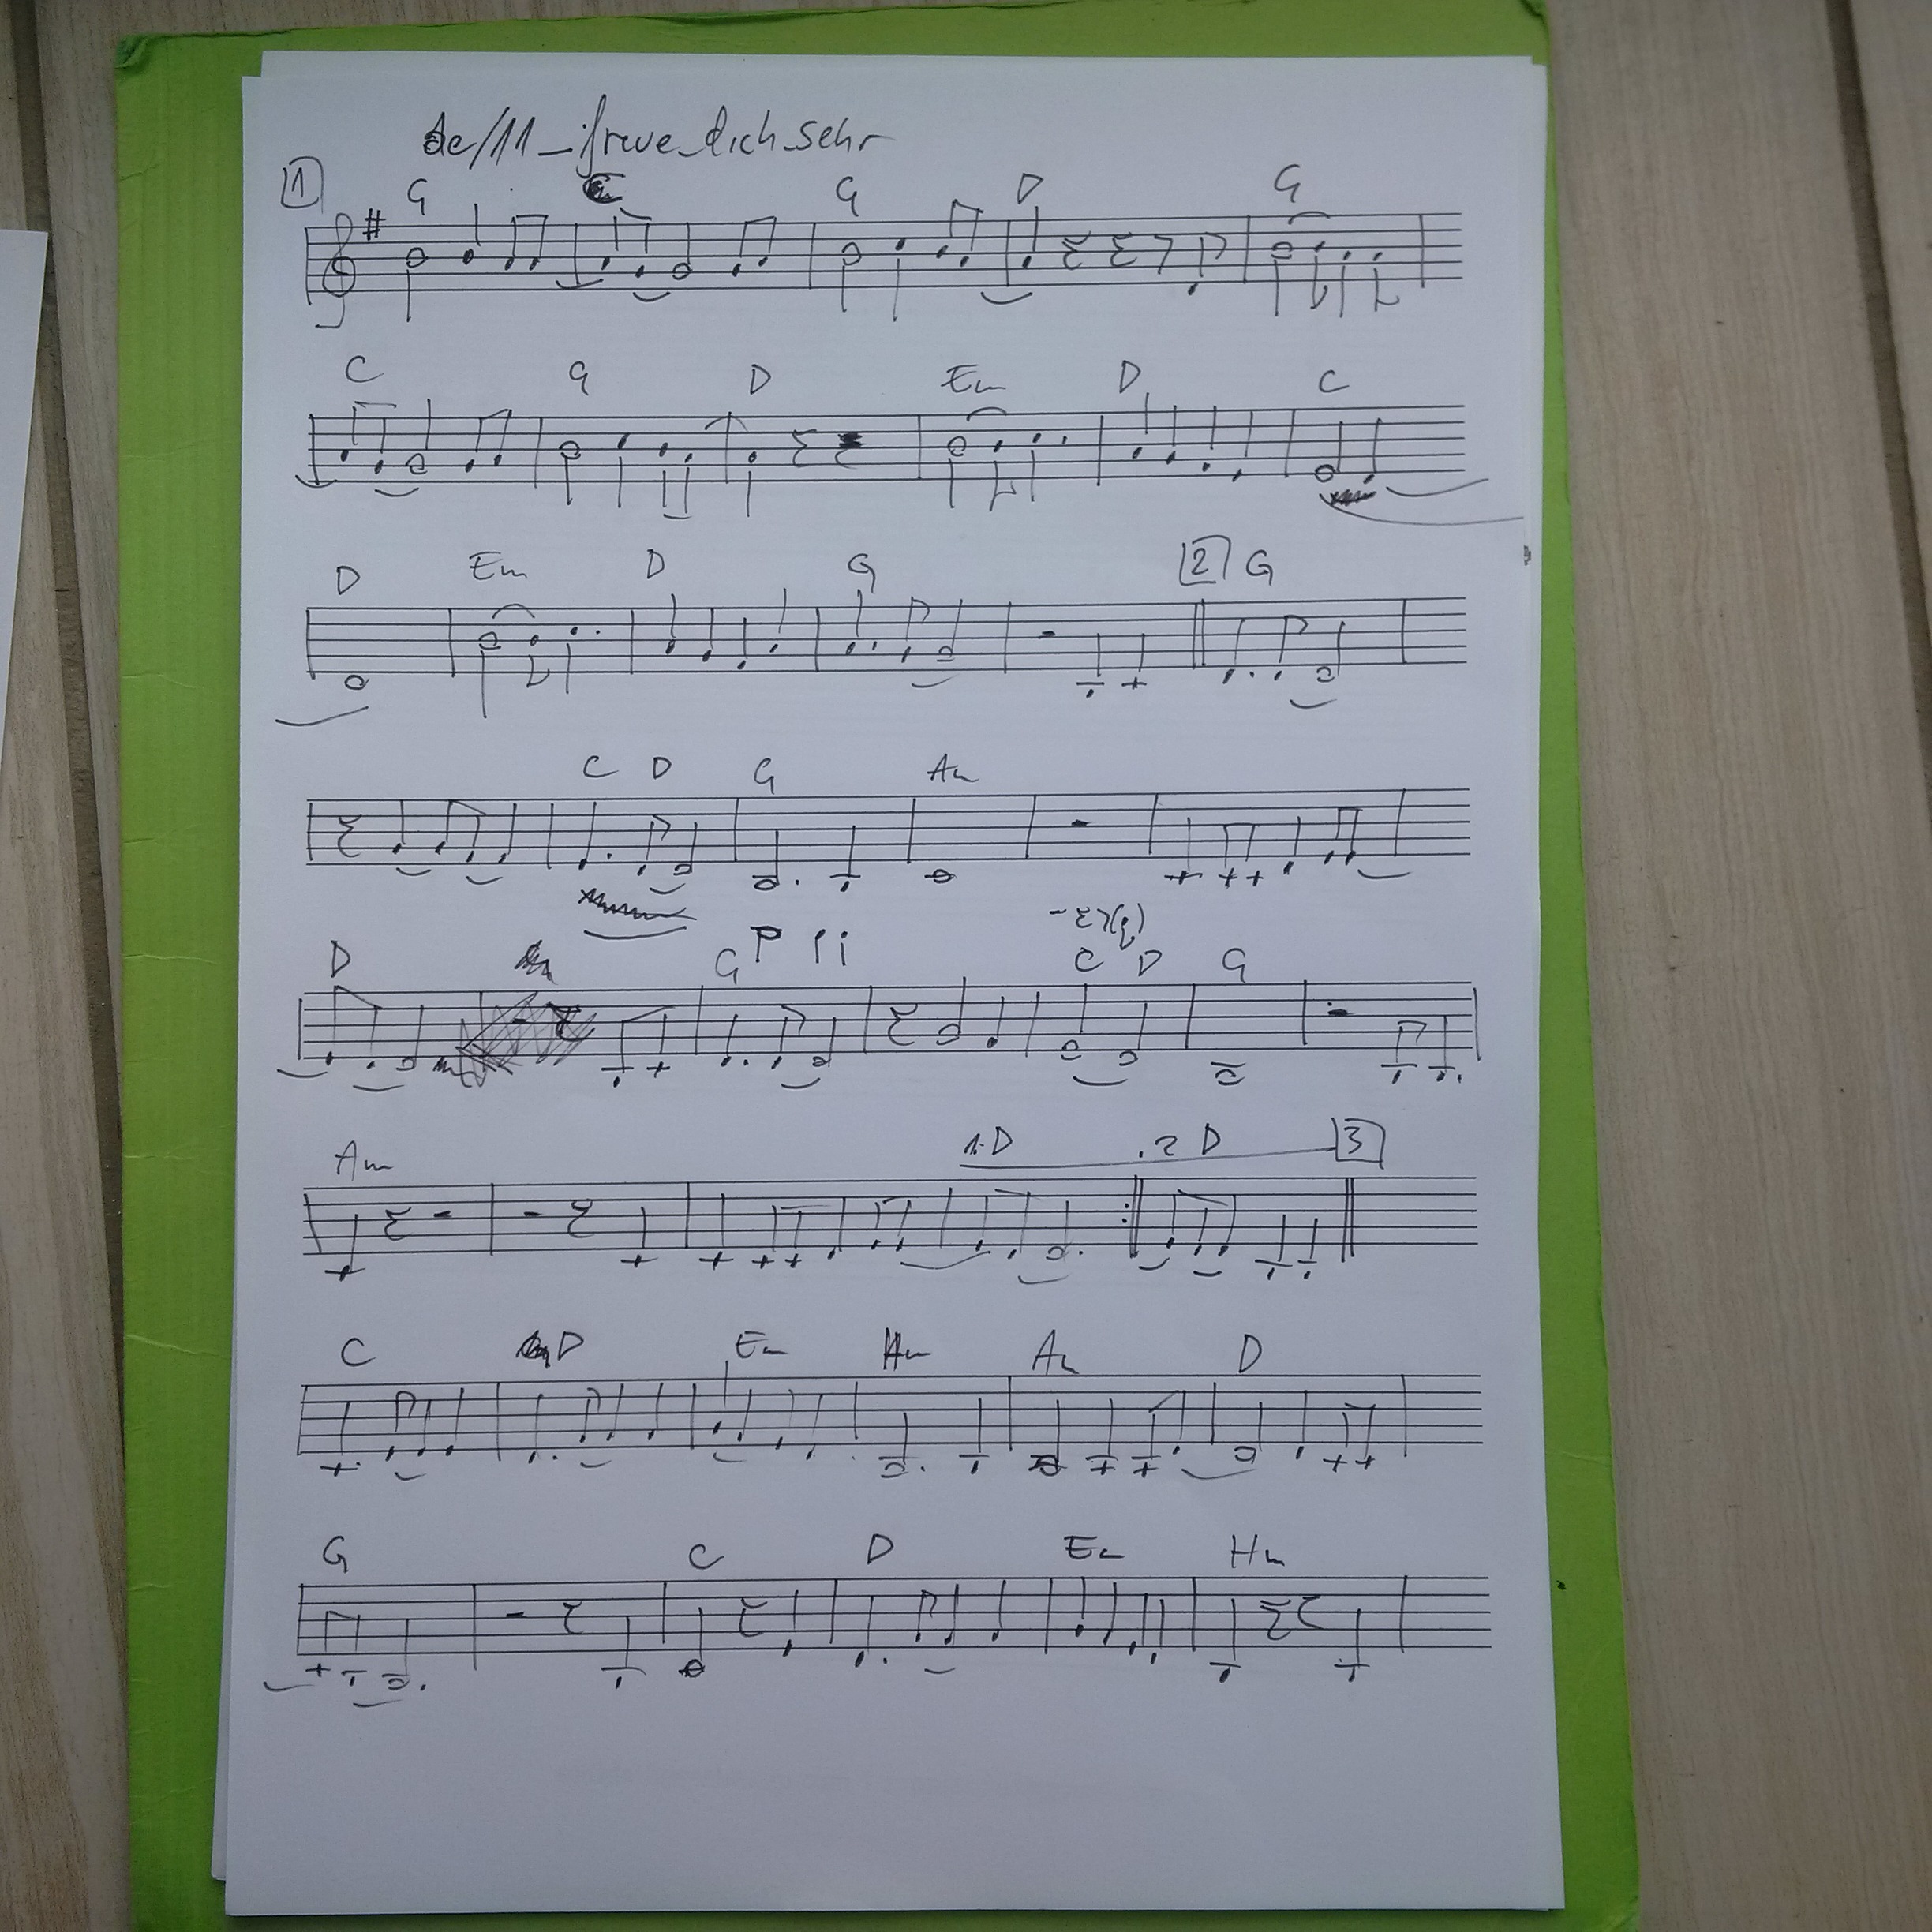 de/11_freue_dich_sehr
1 G C G D G
C G D Em D C
D Em D G 2 G
C D G Am
D G C D G
Am 1. D 2 D 3
C D Em Hm Am D
G C D Em Hm